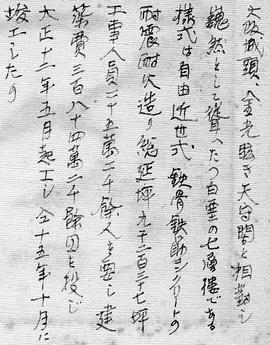 大阪城頭、金光眩き天守閣と相対し
巍然として聳へたつ白堊の七層楼である
様式は自由近世式 鉄骨鉄筋コンクリートの
耐震耐火造り 総延坪九千二百三十七坪
工事人員二十五萬二千餘人を要し 建
築費三百八十四萬二千餘円を投じ
大正十二年五月起工し 仝十五年十月に
竣工したの